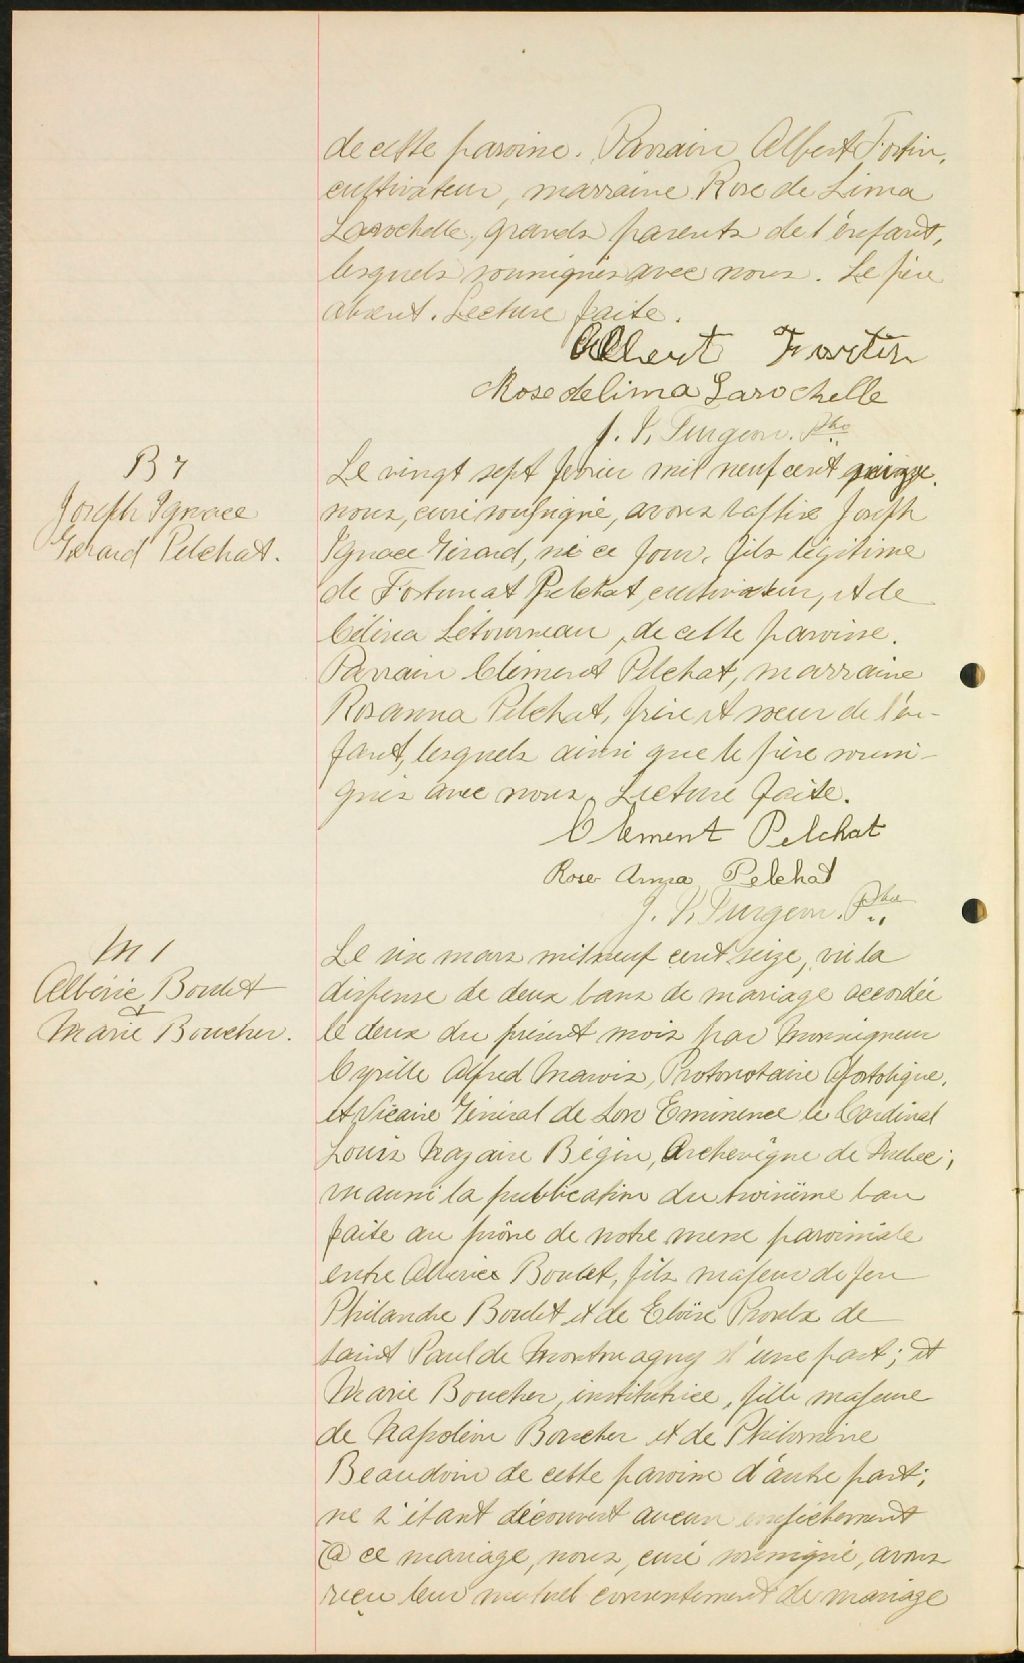 de cette paroisse. Parrain Albert Fortin,
cultivateur, marraine Rose de Lima
Larochelle, grands parents de l'enfant,
lesquels soussignés avec nous. Le père
absent. Lecture faite.
Albert Fortin
Rose de lima Larochelle
J. V. Turgeon. Ptre
B 7
Joseph Ignace
Gérard Pelchat.
Le vingt sept février mil neuf cent seize,
nous, curé soussigné, avons baptisé Joseph
Ignace Gérard, né ce jour, fils légitime
de Fortunat Pelchat, cultivateur, et de
Célina Létourneau, de cette paroisse.
Parrain Clément Pelchat, marraine
Rosanna Pelchat, frère et soeur de l'en-
fant, lesquels ainsi que le père soussi-
gnés avec nous. Lecture faite.
Clement Pelchat
Rose Anna Pelchat
J. V. Turgeon. Ptre
M 1
Albéric Boulet
&
Marie Boucher.
Le six mars mil neuf cent seize, vu la
dispense de deux bans de mariage accordée
le deux du présent mois par Monseigneur
Cyrille Alfred Marois, Protonotaire Apostolique,
et Vicaire Général de Son Eminence le Cardinal
Louis Nazaire Bégin, Archevêque de Québec;
vu aussi la publication du troisième ban
faite au prône de notre messe paroissiale
entre Albéric Boulet, fils majeur de feu
Philandre Boulet et de Eloïse Proulx de
Saint Paul de Montmagny d'une part; et
Marie Boucher, institutrice, fille majeure
de Napoléon Boucher et de Philomène
Beaudoin de cette paroisse d'autre part;
ne s'étant découvert aucun empêchement
à ce mariage, nous, curé soussigné, avons
reçu leur mutuel consentement de mariage